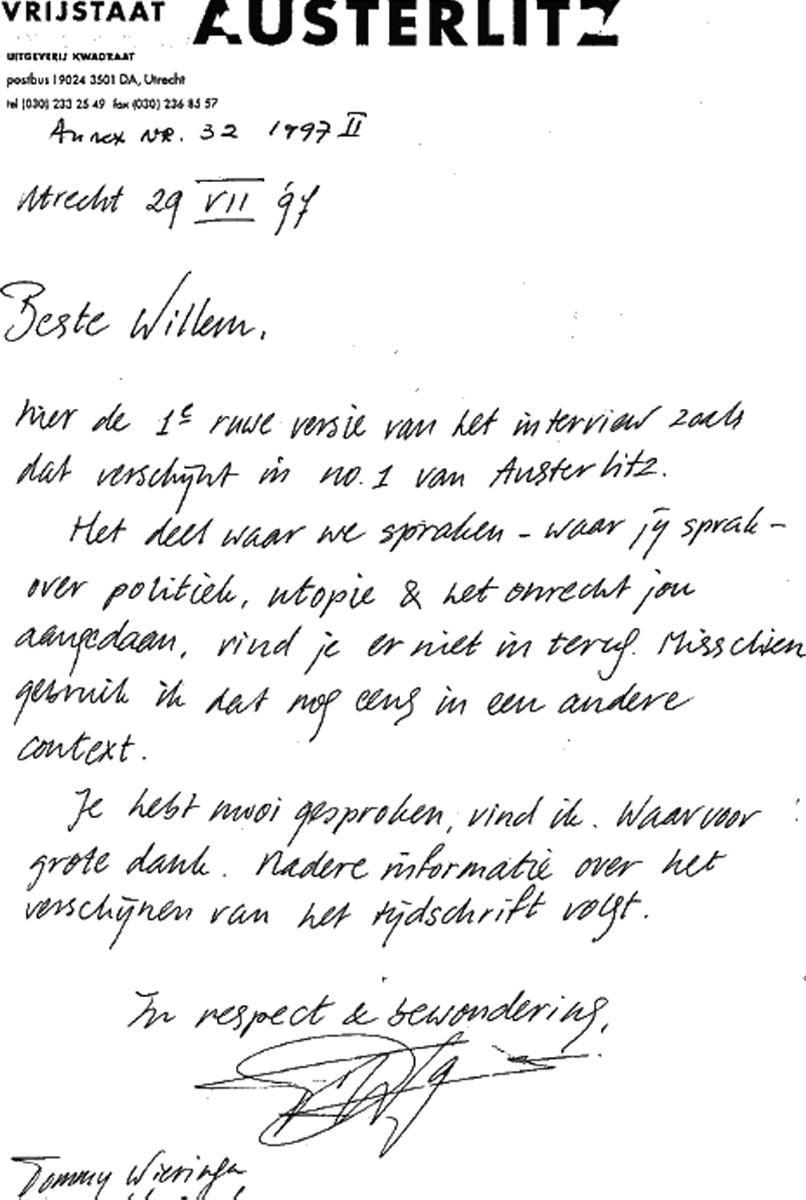 VRIJSTAAT AUSTERLITZ
UITGEVERIJ KWADRAAT
postbus 19024 3501 DA, Utrecht
tel (030) 233 25 49 fax (030) 236 85 57
Annex NR. 32 1997 II
Utrecht 29 VII '97
Beste Willem,
hier de 1e ruwe versie van het interview zoals
dat verschijnt in no. 1 van Austerlitz.
Het deel waar we spraken - waar jij sprak -
over politiek, utopie & het onrecht jou
aangedaan, vind je er niet in terug. Misschien
gebruik ik dat nog eens in een andere
context.
Je hebt mooi gesproken, vind ik. Waarvoor
grote dank. Nadere informatie over het
verschijnen van het tijdschrift volgt.
In respect & bewondering,
Tommy Wieringa